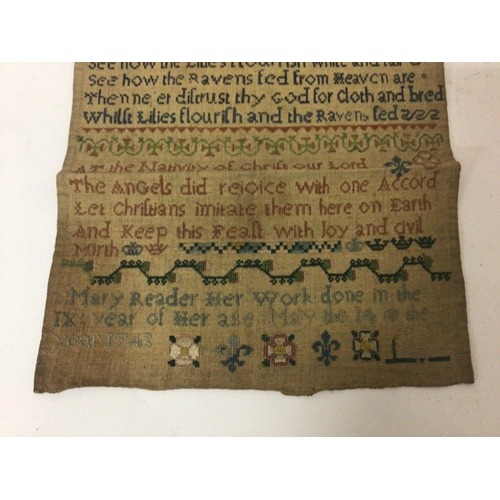 See how the Lilies flourish white and fair
See how the Ravens fed from Heaven are
Then ne'er distrust thy God for Cloth and bred
Whilst Lilies flourish and the Ravens fed
At the Nativity of Christ our Lord
The Angels did rejoice with one Accord
Let Christians imitate them here on Earth
And Keep this Feast with Joy and civil
Mirth
Mary Reader Her Work done in the
IX year of Her age May the 14 in the
year 1743